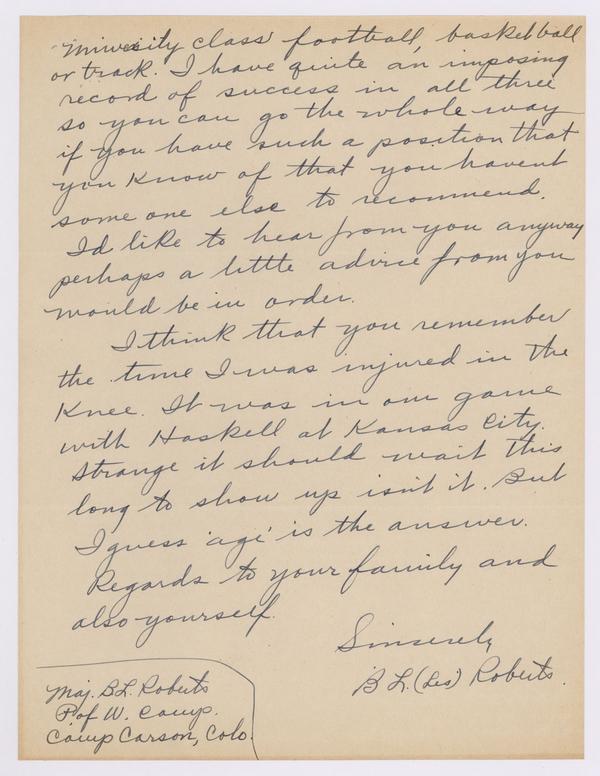 University class football, basketball
or track. I have quite an imposing
record of success in all three
so you can go the whole way
if you have such a position that
you know of that you havent
some one else to recommend.
I'd like to hear from you anyway
perhaps a little advice from you
would be in order.
I think that you remember
the time I was injured in the
Knee. It was in our game
with Haskell at Kansas City.
Strange it should wait this
long to show up isn't it. But
I guess 'age' is the answer.
Regards to your family and
also yourself.
Sincerely
B L. (Les) Roberts.
Maj. B.L. Roberts
P. of W. Camp.
Camp Carson, Colo.